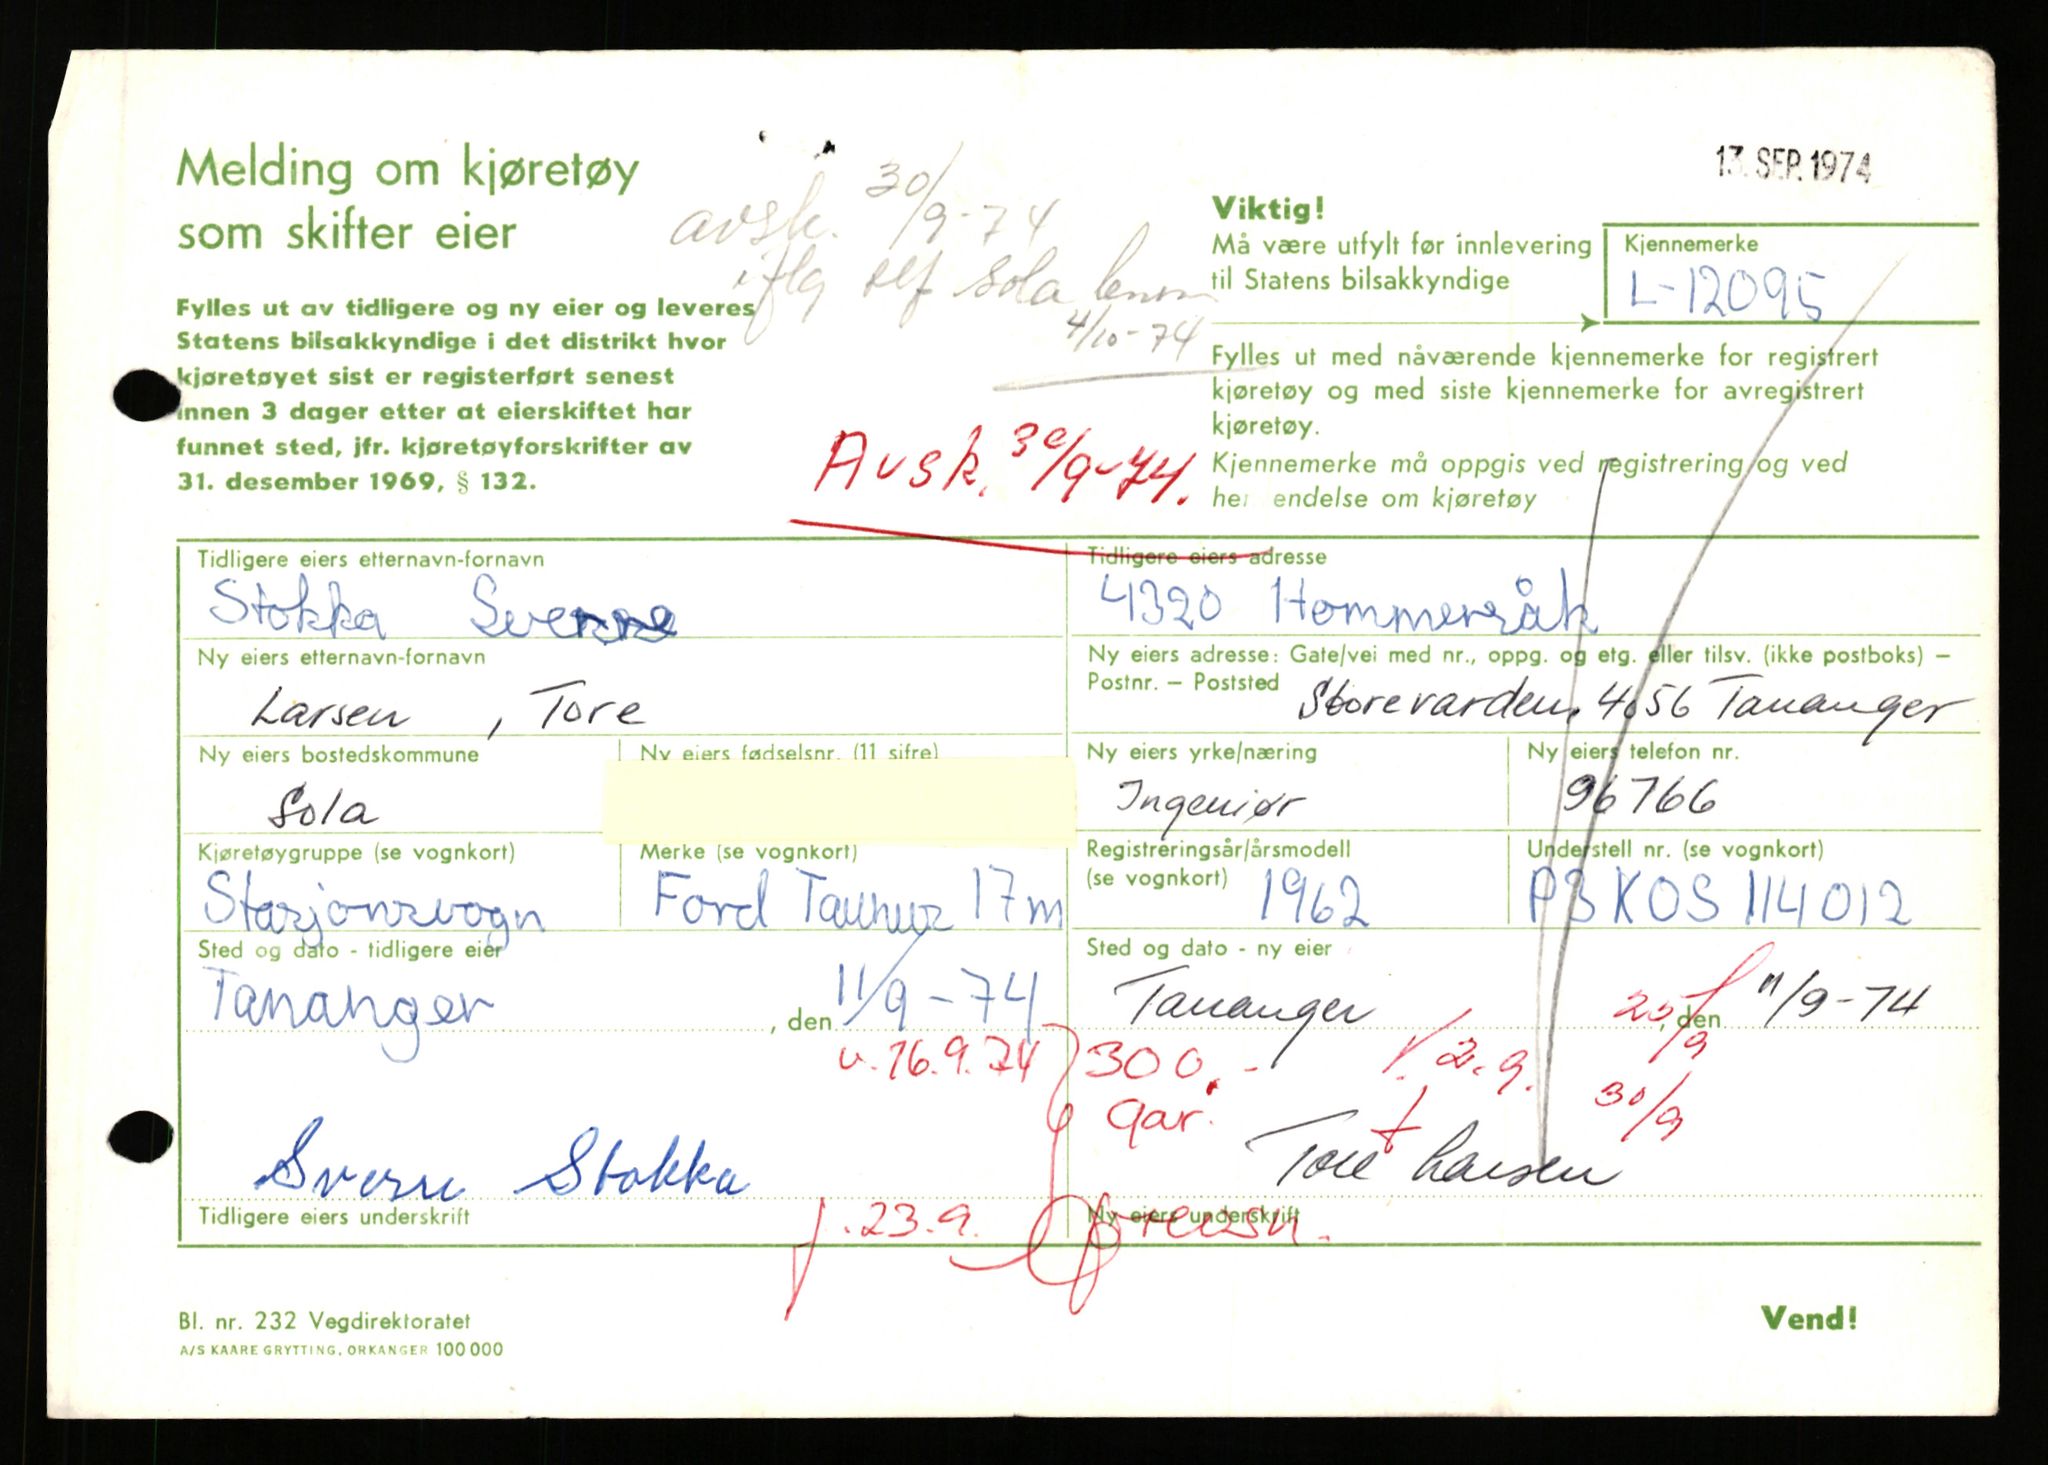 13. SEP. 1974
Melding om kjøretøy
som skifter eier
avsk. 30/9-74
iflg tlf Sola
4/10-74
Fylles ut av tidligere og ny eier og leveres
Statens bilsakkyndige i det distrikt hvor
kjøretøyet sist er registerført senest
innen 3 dager etter at eierskiftet har
funnet sted, jfr. kjøretøyforskrifter av
31. desember 1969, § 132.
Avsk. 30/9-74.
Viktig!
Må være utfylt før innlevering
til Statens bilsakkyndige
Kjennemerke
L-12095
Fylles ut med nåværende kjennemerke for registrert
kjøretøy og med siste kjennemerke for avregistrert
kjøretøy.
Kjennemerke må oppgis ved registrering og ved
hen endelse om kjøretøy
Tidligere eiers etternavn-fornavn
Stokka Sverre
Tidligere eiers adresse
4320 Hommersåk
Ny eiers etternavn-fornavn
Larsen, Tore
Ny eiers adresse: Gate/vei med nr., oppg. og etg. eller tilsv. (ikke postboks) –
Postnr. – Poststed
Storevarden, 4056 Tananger
Ny eiers bostedskommune
Sola
Ny eiers fødselsnr. (11 sifre)
Ny eiers yrke/næring
Ingeniør
Ny eiers telefon nr.
96766
Kjøretøygruppe (se vognkort)
Stasjonsvogn
Merke (se vognkort)
Ford Taunus 17m
Registreringsår/årsmodell
(se vognkort)
1962
Understell nr. (se vognkort)
P3KOS114012
Sted og dato - tidligere eier
Tananger, den 11/9-74
Sted og dato - ny eier
Tananger, den 11/9-74
25/9
u. 16.9.74
300.-
gar.
2.9.
30/9
Sverre Stokka
Tore Larsen
Tidligere eiers underskrift
Ny eiers underskrift
f. 23.9.
Bl. nr. 232 Vegdirektoratet
A/S KAARE GRYTTING, ORKANGER 100 000
Vend!